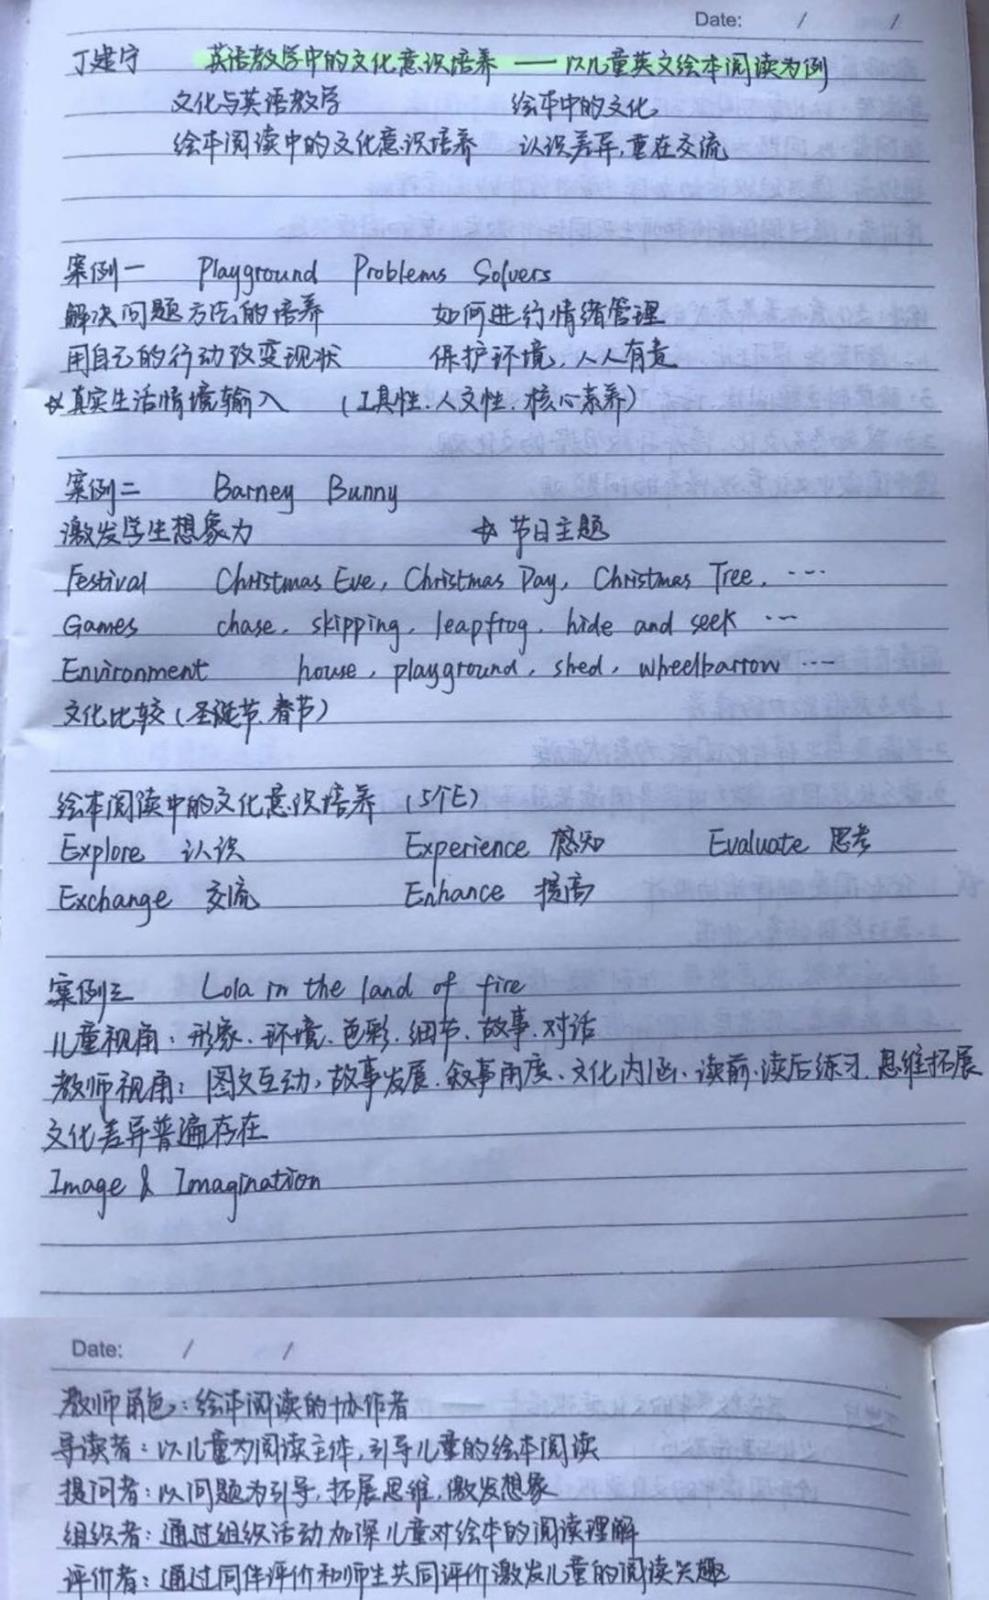 Date: / /
丁建宁 英语教学中的文化意识培养 —— 以儿童英文绘本阅读为例
文化与英语教学 绘本中的文化
绘本阅读中的文化意识培养 认识差异,重在交流
案例一 Playground Problems Solvers
解决问题方法的培养 如何进行情绪管理
用自己的行动改变现状 保护环境,人人有责
☆真实生活情境输入 (工具性.人文性.核心素养)
案例二 Barney Bunny
激发学生想象力 ☆节日主题
Festival Christmas Eve, Christmas Day, Christmas Tree, ...
Games chase, skipping, leapfrog, hide and seek ...
Environment house, playground, shed, wheelbarrow ...
文化比较(圣诞节、春节)
绘本阅读中的文化意识培养 (5个E)
Explore 认识 Experience 感知 Evaluate 思考
Exchange 交流 Enhance 提高
案例三 Lola in the land of fire
儿童视角:形象、环境、色彩、细节、故事、对话
教师视角:图文互动、故事发展、叙事角度、文化内涵、读前、读后练习、思维拓展
文化差异普遍存在
Image & Imagination
Date: / /
教师角色:绘本阅读的协作者
导读者:以儿童为阅读主体,引导儿童的绘本阅读
提问者:以问题为引导,拓展思维,激发想象
组织者:通过组织活动加深儿童对绘本的阅读理解
评价者:通过同伴评价和师生共同评价激发儿童的阅读兴趣